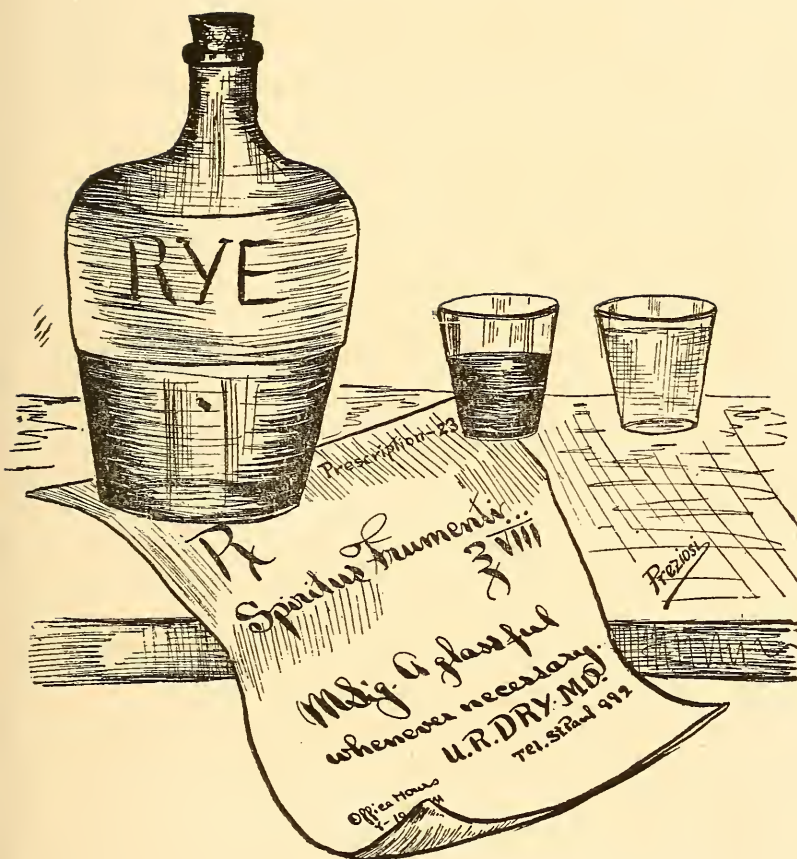 RYE
Prescription-23
Rx
Spiritus Frumenti...
℥VIII
MSig. A glassful
whenever necessary.
U.R.DRY.M.D.
Tel. St Paul 992
Office Hours
Preziosi